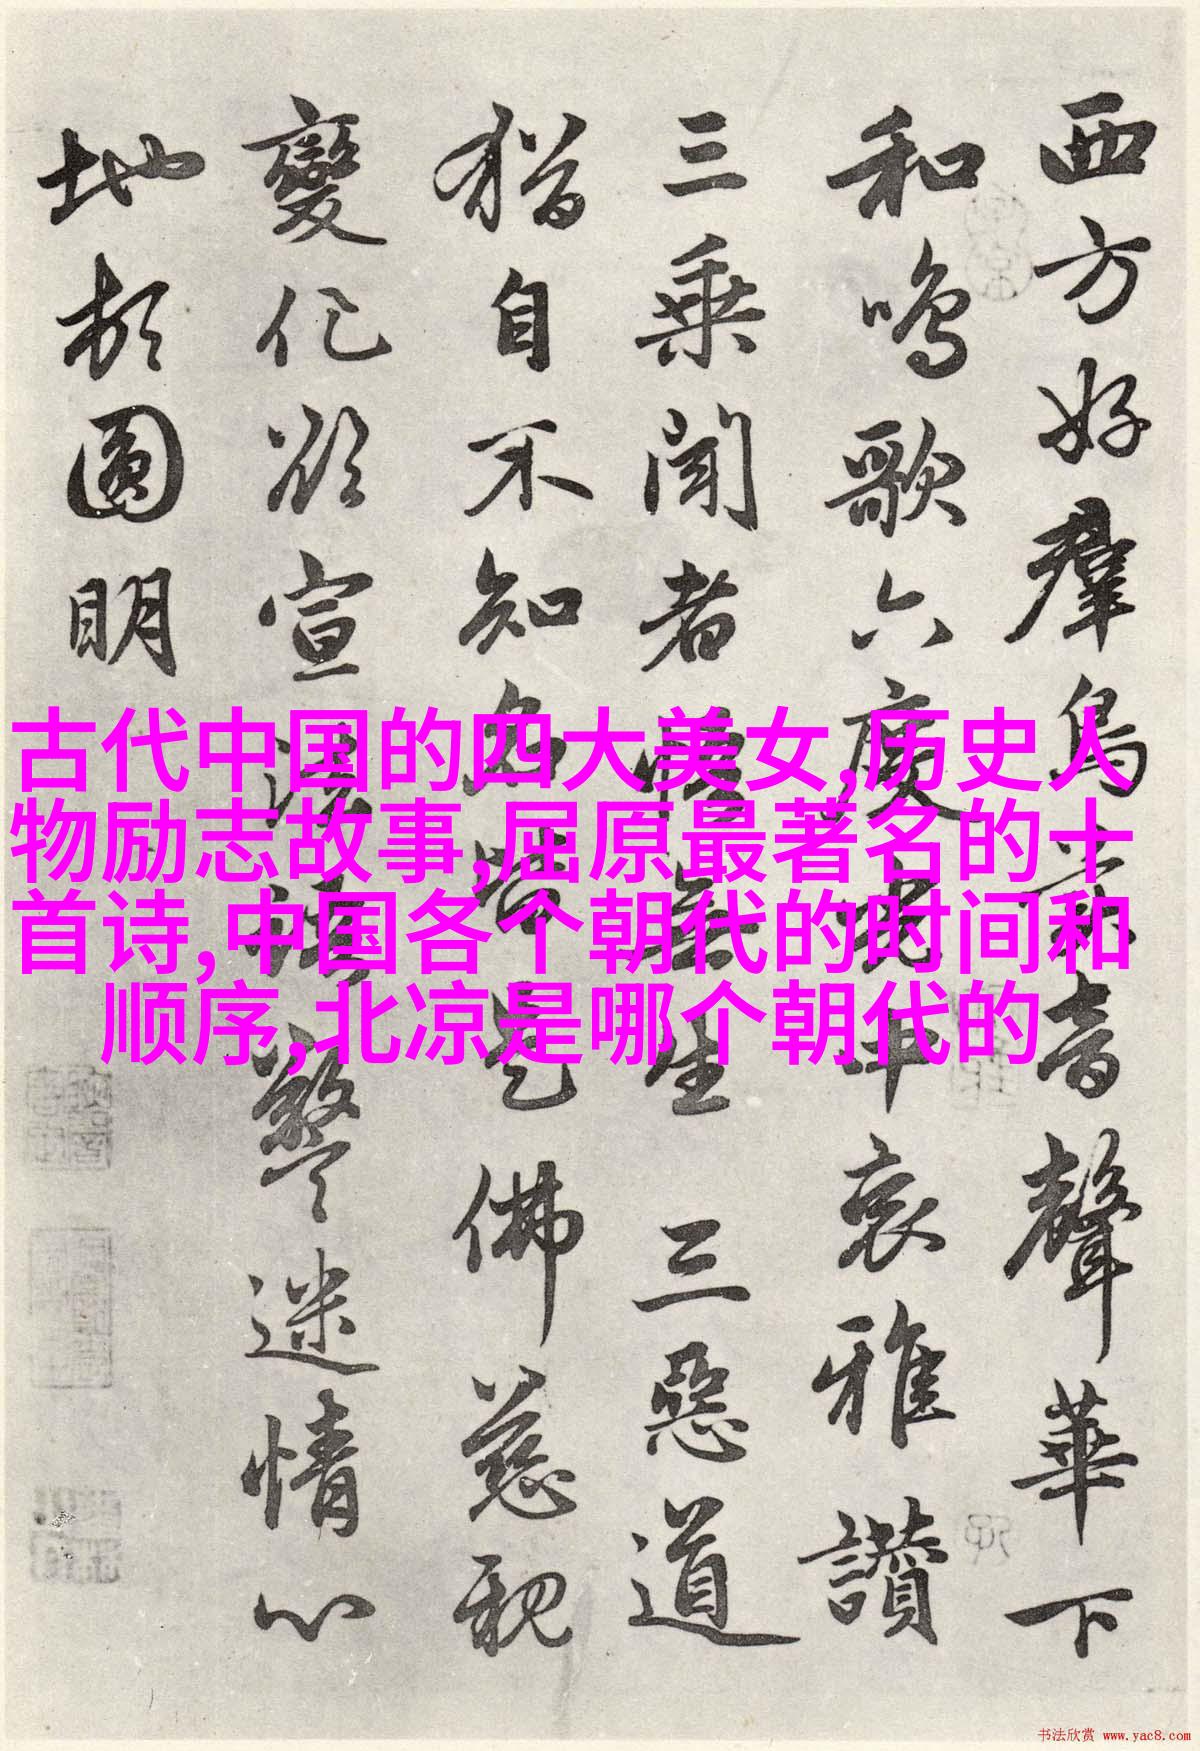 西方好群鳥音聲華下
和鳴歌六度申哀雅讚
三乘聞者生三惡道
猶自不知名是佛慈親
變化欲宣法警迷情心
地頓圓明
古代中国的四大美女,历史人
物励志故事,屈原最著名的十
首诗,中国各个朝代的时间和
顺序,北凉是哪个朝代的
书法欣赏 www.yac8.com